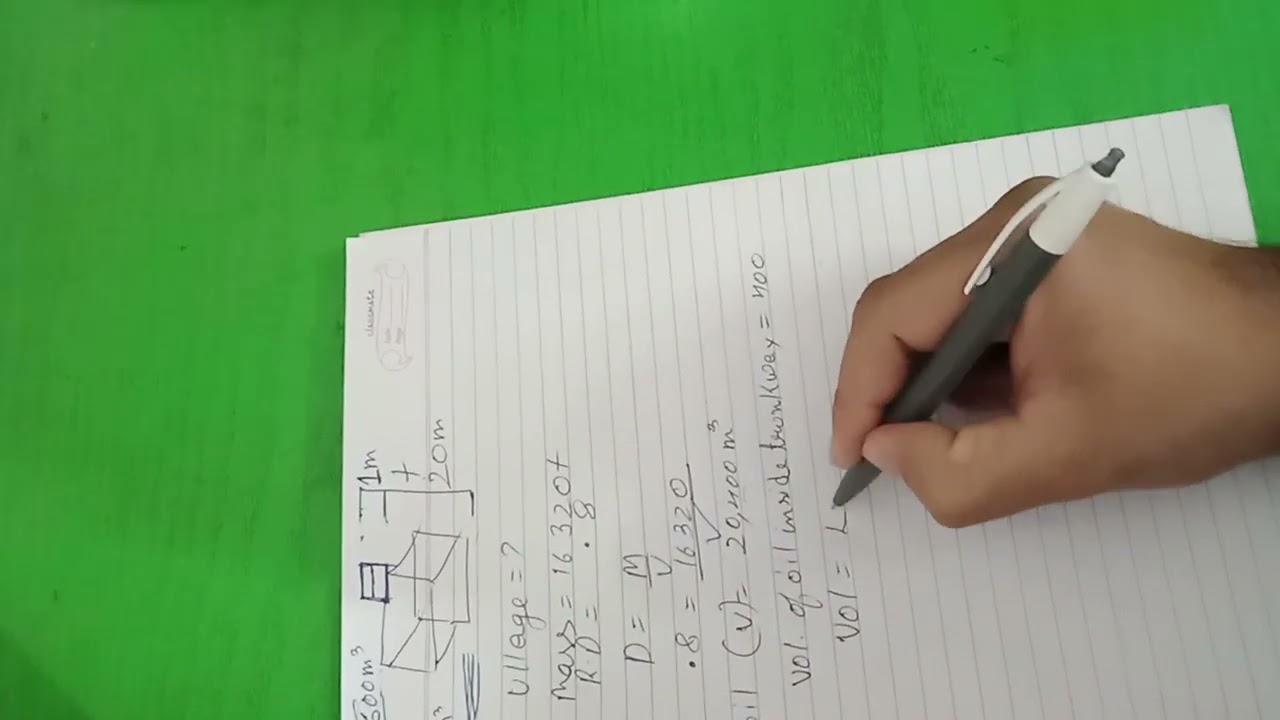 classmate
500m³
1m
+
20m
m³
Ullage = ?
Mass = 16320t
R.D = .8
D = M
V
.8 = 16320
V
oil (V) = 20,400 m³
Vol. of oil inside trunkway = 400
Vol = L